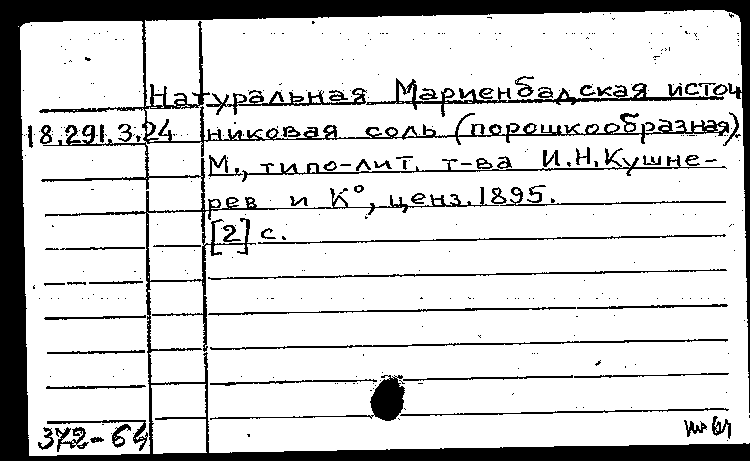 Натуральная Мариенбадская источ
18.291.3.24 никовая соль (порошкообразная).
М., типо-лит. т-ва И.Н.Кушне-
рев и К°, ценз.1895.
[2] с.
372-64